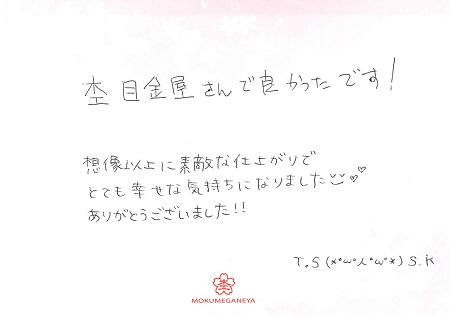 杢目金屋さんで良かったです!
想像以上に素敵な仕上がりで
とても幸せな気持ちになりました
ありがとうございました!!
T.S (*°ω°人°ω°*) S.K
MOKUMEGANEYA